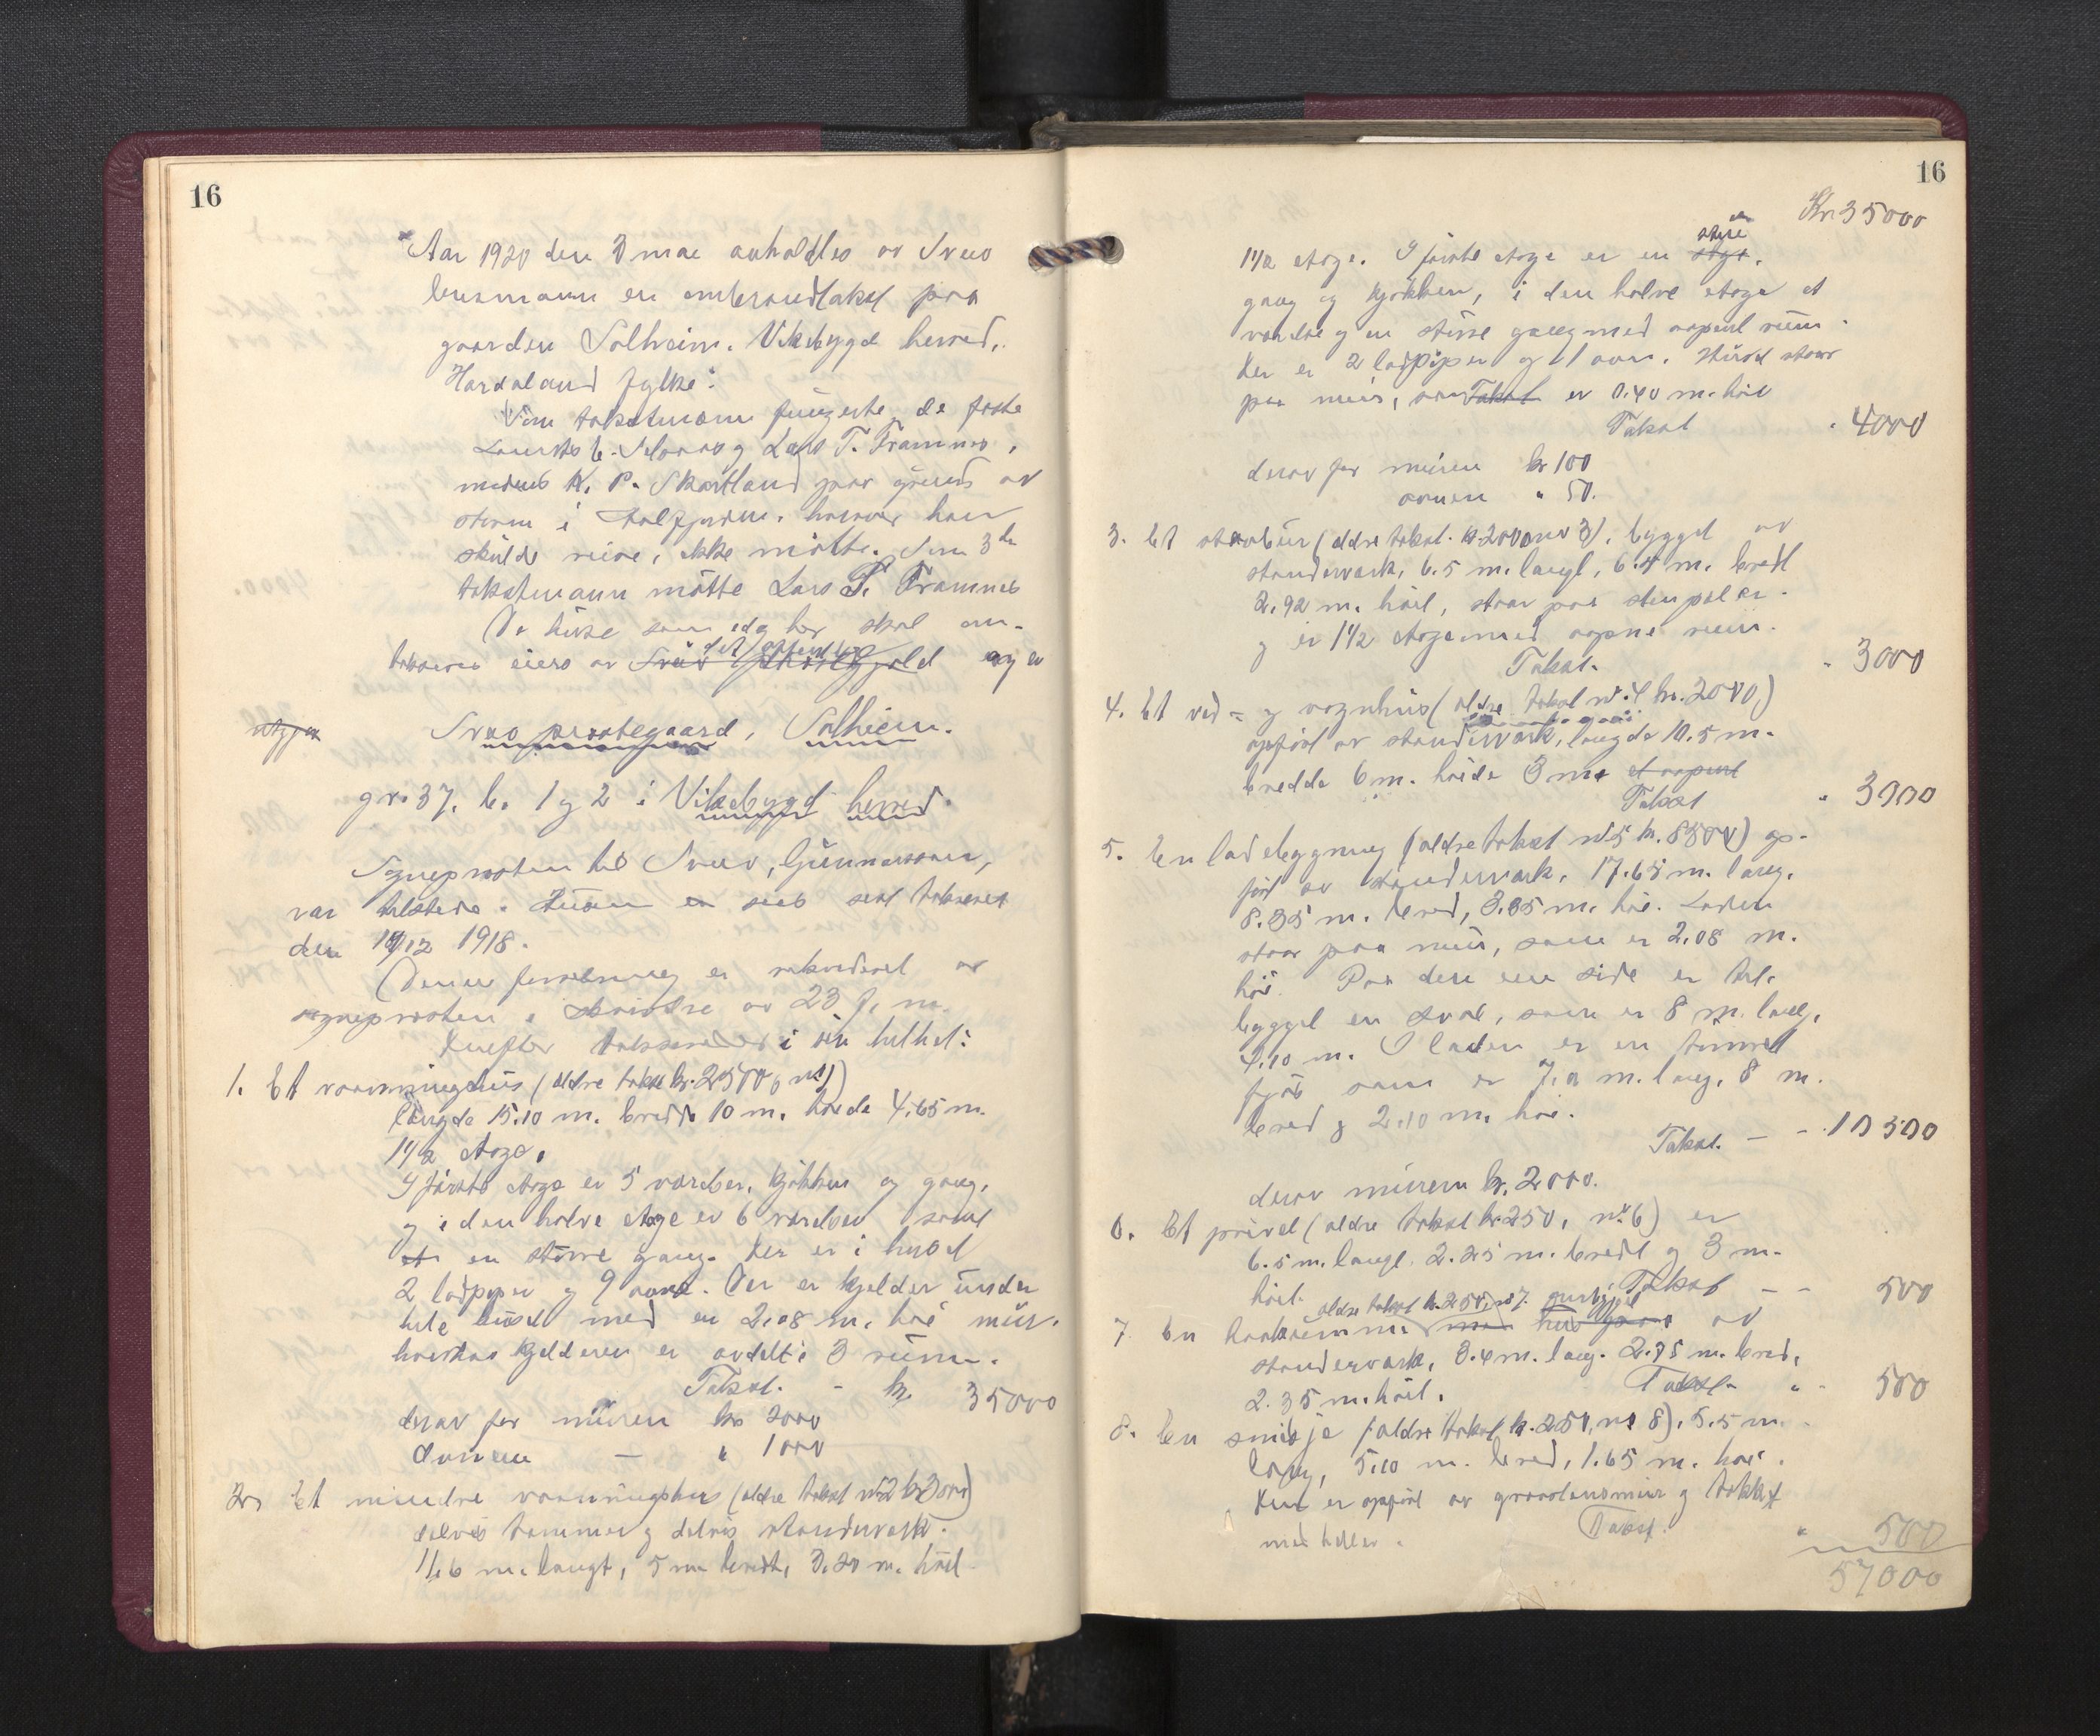 16
Aar 1920 den 3 mai avholdtes av Sveio
lensmann en ombrandtakst paa
gaarden Solheim. Vikebygd herred,
Hordaland fylke:
Som takstmenn fungerte de faste
Lars T. Framnes,
medens K. P. Skartland paa grund av
storm i Aalfjorden, hvorover han
skulde reise, ikke møtte. Som 3die
takstmann møtte Lars S. Framnes
De huse som idag her skal om-
takseres eies av det og er
Sveio prestegaard, Solheim.
gr. 37. b. 1 og 2 i Vikebygd herred.
Sogneprosten til Sveio, Gunnarson,
var tilstede. Husene er sens sist takseret
den 19/12 1918.
Denne forretning er rekvirert av
sogneprosten i skrivelse av 23 f. m.
Huse takseredes i sin helhet:
1. Et vaaningshus (ældre takst kr. 25000, nr 1)
længde 15.10 m. bredde 10 m. høide 4.65 m.
1 1/2 etage.
I første etage er 5 værelser, kjøkken og gang,
og i den halve etage er 6 værelser samt
en større gang. Der er i huset
2 ladpiper og 9 ovne. Der er kjelder under
hele huset med en 2.08 m. høi mur.
kjelderen er avdelt i 3 rum.
Takst. - kr. 35000
derav for muren kr 2000
Ovnene — " 1000
2. Et mindre vaaningshus (ældre takst nr 2 kr 3000)
delvis tømmer og delvis standerverk.
11.6 m. langt, 5 m bredt, 3.20 m. høit
16
Kr. 35000
1 1/2 etage. I første etage er en stue
gang og kjøkken, i den halve etage et
værelse og en større gang med aapent rum.
Der er 2 ladpiper og 1 ovn. Huset staar
paa mur, som Takst er 0.40 m. høi
Takst " 4000
derav for muren kr 100
ovnen " 50.
3. Et stabur (ældre takst. kr 2000 nr 3), bygget av
standerverk, 6.5 m. langt, 6.4 m. bredt
2.92 m. høit, staar paa stenpæler.
og er 1 1/2 etage med aapne rum.
Takst. " 3000
4. Et ved- og vognhus (ældre takst nr. 4 kr. 2000)
opført av standerverk, længde 10.5 m.
bredde 6 m. høide 3 m. et aapent
Takst " 3000
5. En ladebygning (ældre takst nr 5 kr. 8500) op-
ført av standerverk, 17.65 m. lang,
8.35 m. bred, 3.85 m. høi. Laden
staar paa mur, som er 2.08 m.
høi. Paa den ene side er til-
bygget en sval, som er 8 m. lang,
4.10 m. I laden er en tømret
fjøs som er 7.2 m. lang, 8 m.
bred og 2.10 m. høi.
Takst. — - 10500
derav muren kr. 2000.
6. Et privet (ældre takst kr. 250, nr. 6) er
6.5 m. langt. 2.25 m. bredt og 3 m.
høit. Takst — - 500
ældre takst kr. 250, nr 7.
7. En av
standerverk, 3.4 m. lang. 2.75 m. bred,
2.35 m. høit. Takst " 500
8. En smidje (ældre takst kr. 250, nr 8), 5.5 m.
lang, 5.10 m. bred, 1.65 m. høi.
Den er opført av graastensmur og tækket
med heller. Takst. " 500
57000